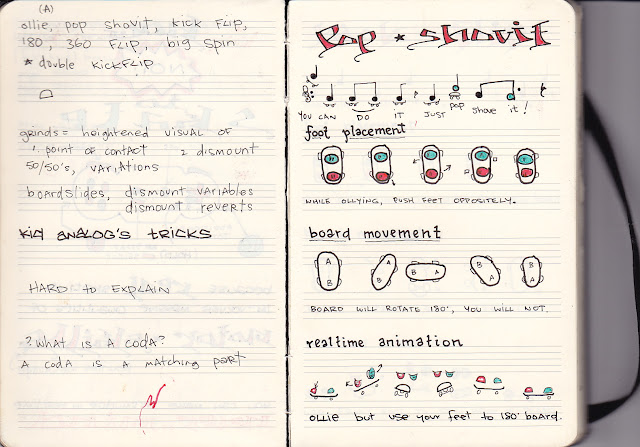 (A)
ollie, pop shovit, kick flip,
180, 360 flip, big spin
* double kickflip
grinds = heightened visual of
1. point of contact 2 dismount
50/50's, variations
boardslides, dismount variables
dismount reverts
Kid Analog's Tricks
Hard to explain
? What is a coda?
A coda is a matching part
Pop * Shovit
You can do it just pop shove it!
foot placement
while ollying, push feet oppositely.
board movement
A A B A B A B
B B A
Board will rotate 180°, you will not.
realtime animation
Ollie but use your feet to 180° board.